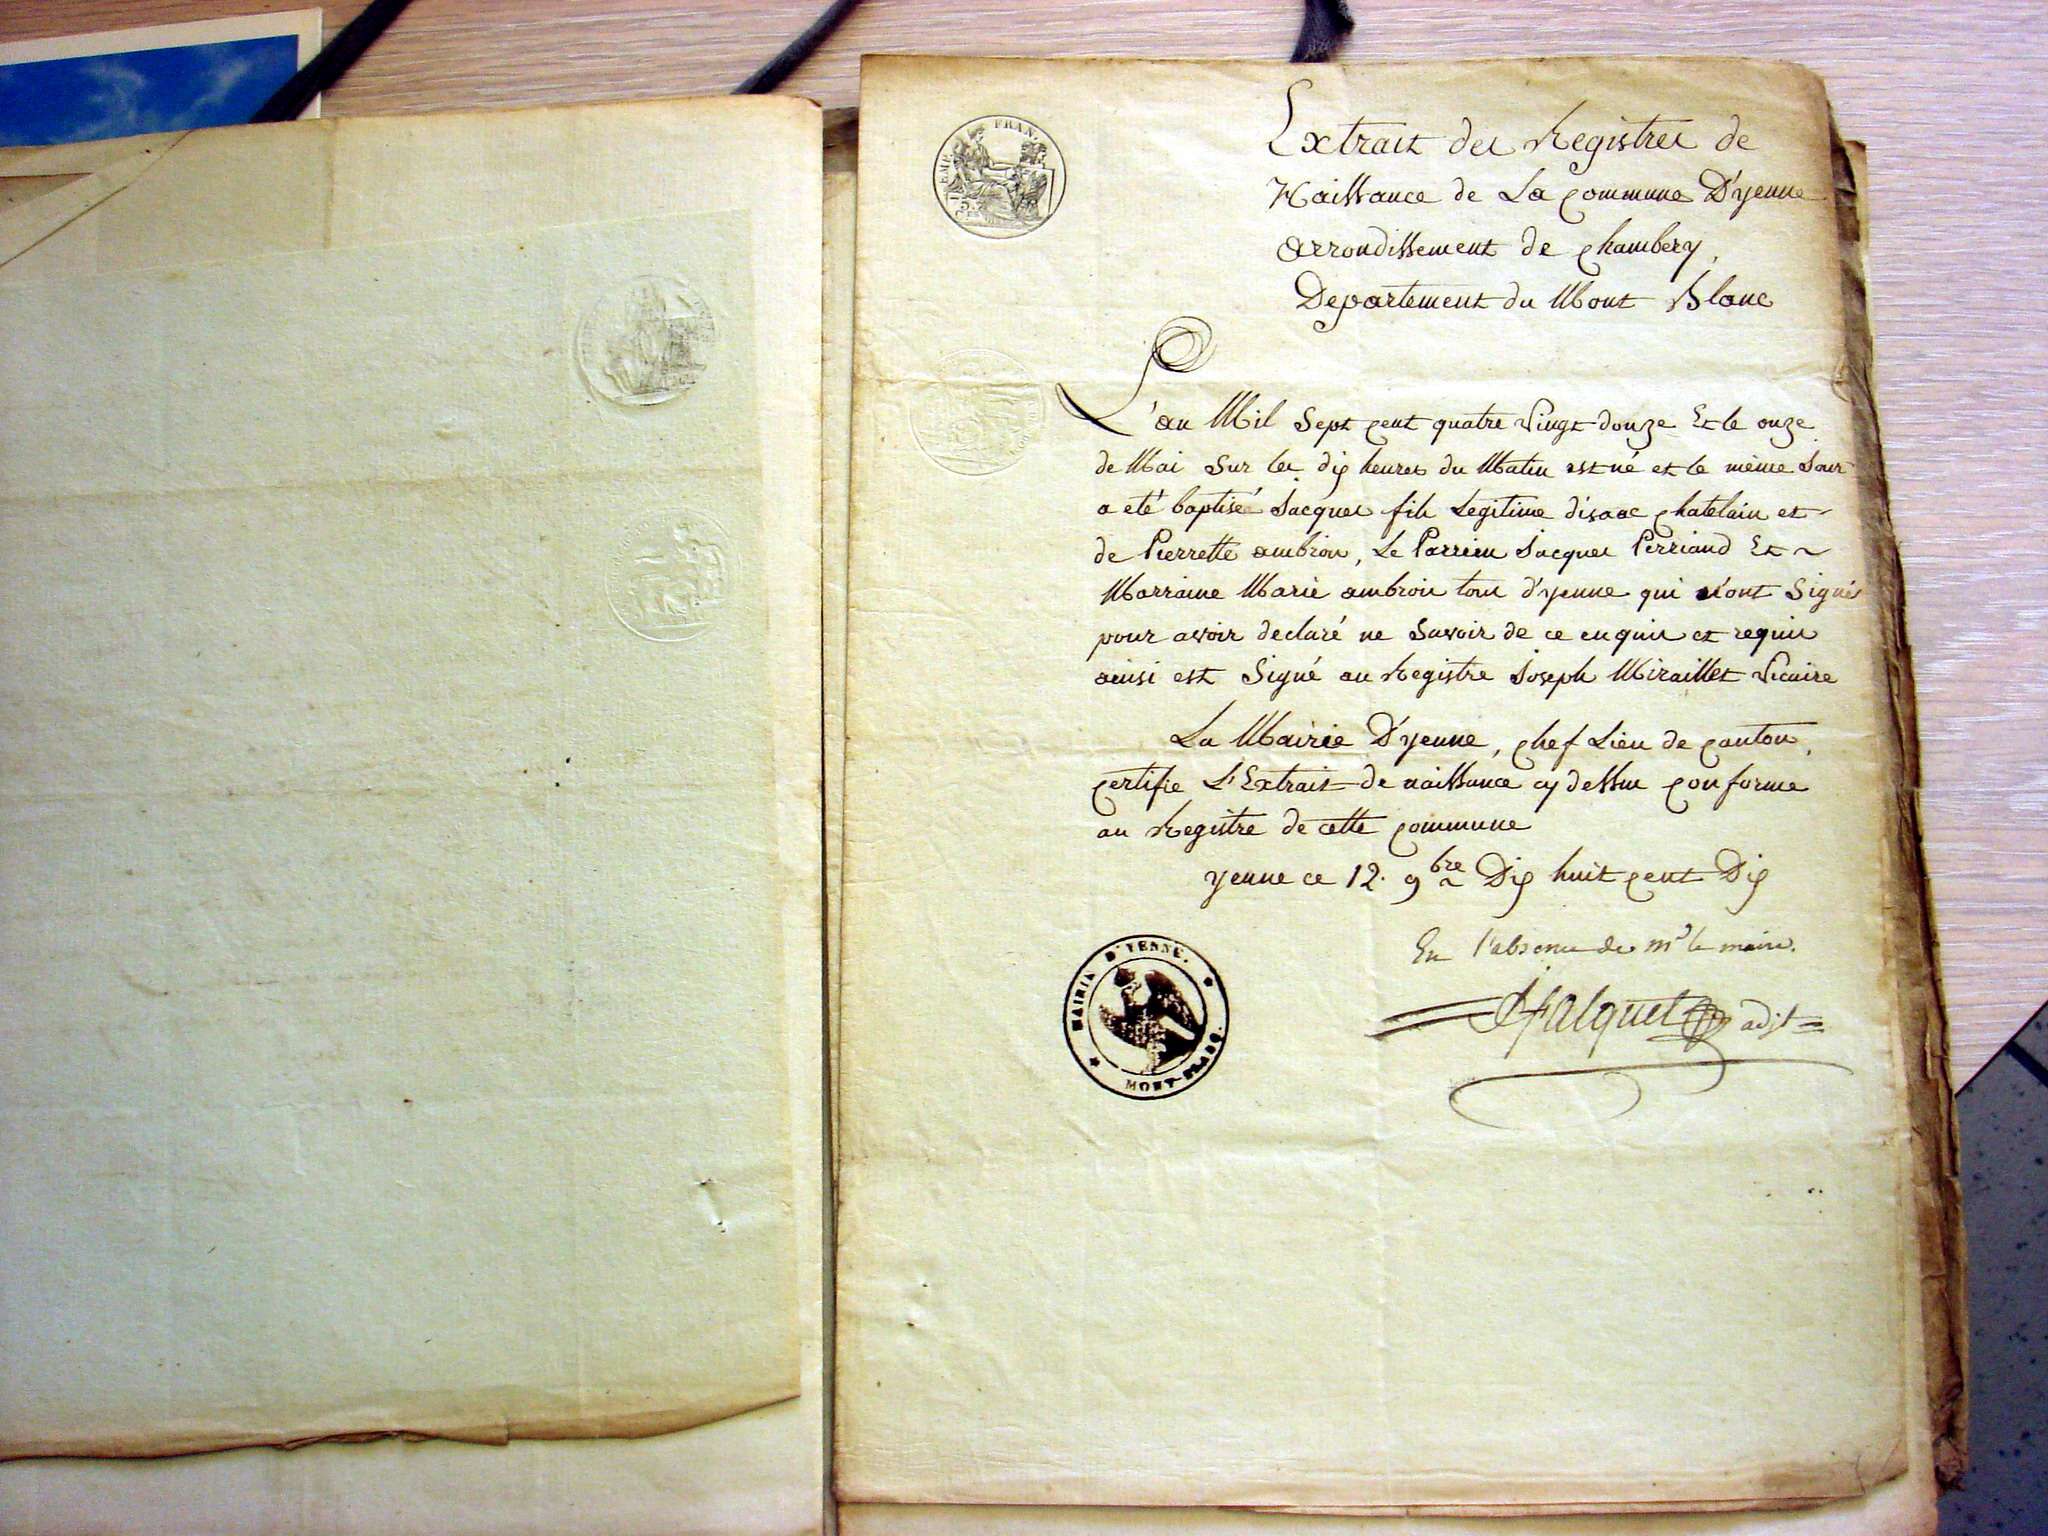 EMP. FRAN.
75.
Extrait des Registres de
Naissance de La Commune D'yenne
arrondissement de Chambery,
Departement du Mont Blanc
L'an Mil Sept Cent quatre Vingt douze Et le onze
de Mai Sur les dix heures du Matin est né et le même Jour
a eté baptisé Jacques fils Legitime d'isaac Chatelain et
de Pierrette ambrois, Le Parrein Jacques Perriand Et
Marraine Marie ambrois tous d'yenne qui n'ont Signés
pour avoir declaré ne Savoir de ce enquis et requis
ainsi est Signé au Registre Joseph Miraillet Vicaire
La Mairie D'yenne, Chef Lieu de Canton,
Certifie L'Extrait de naissance cy dessus Conforme
au Registre de cette Commune
yenne ce 12. 9bre Dix huit Cent Dix
En l'absence de Mr le maire.
Falquet adjt
MAIRIE D'YENNE.
MONT-BLANC.